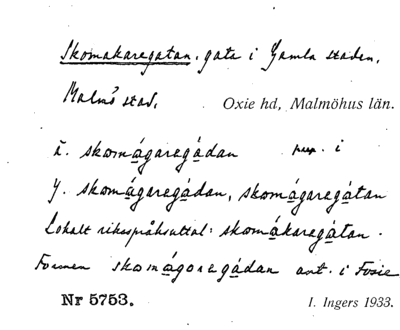 Skomakaregatan, gata i Gamla staden,
Malmö stad. Oxie hd, Malmöhus län.
ä. skomágaregádan prep. i
y. skomágaregádan, skomágaregátan
Lokalt riksspråksuttal: skomákaregátan.
Formen skomágaregádan ant. i Fosie
Nr 5753. I. Ingers 1933.